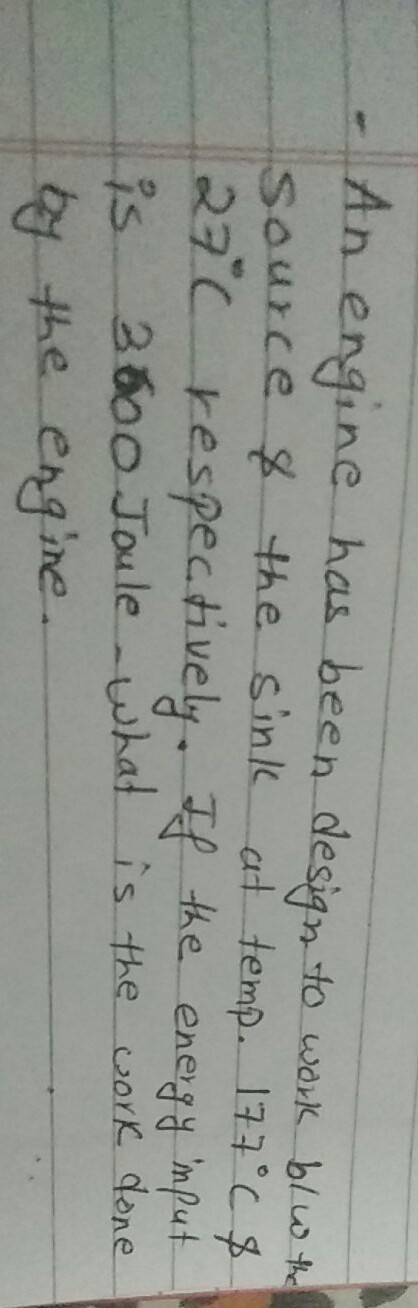 - An engine has been design to work b/w the
source & the sink at temp. 177°C &
27°C respectively. If the energy input
is 3600 Joule - what is the work done
by the engine.